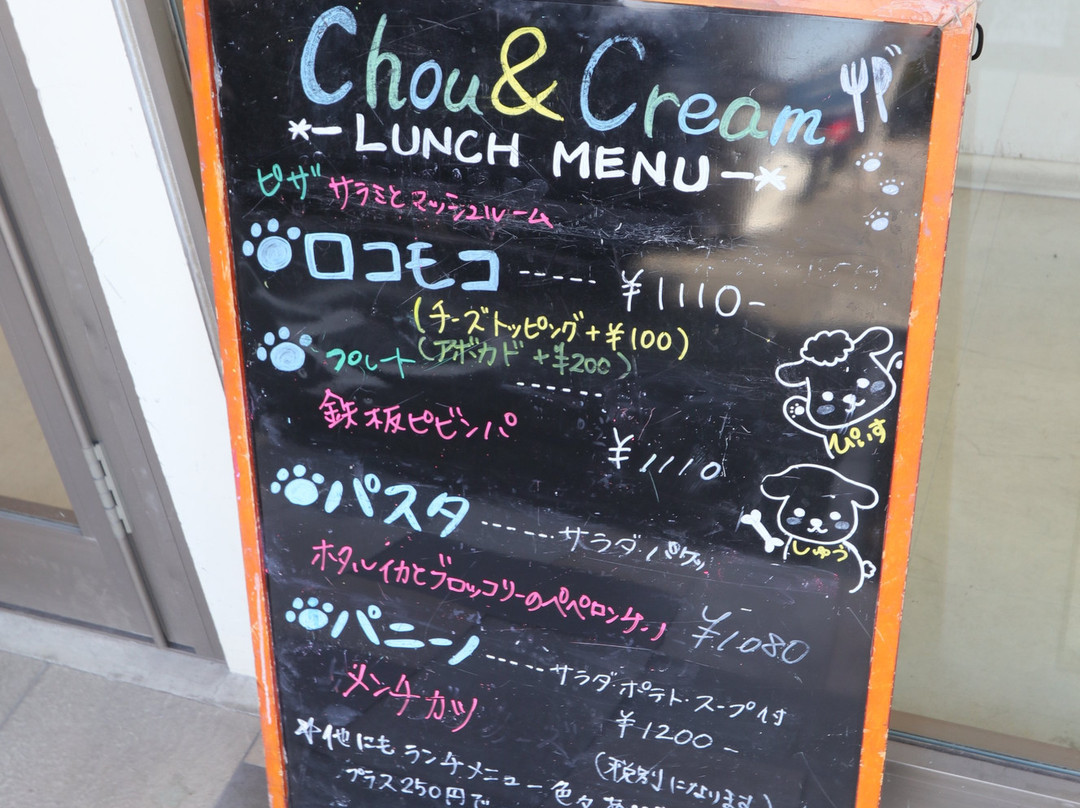 Chou&Cream
*-LUNCH MENU-*
ピザ サラミとマッシュルーム
ロコモコ ----- ¥1110-
(チーズトッピング+¥100)
(アボカド +¥200)
プレート ------
鉄板ビビンバ ¥1110
ぴぃす
パスタ ----- サラダ・バケッ
しゅう
ホタルイカとブロッコリーのペペロンチーノ ¥1.080
パニーノ ----- サラダ・ポテト・スープ付
メンチカツ ¥1200-
(税別になります)
*他にもランチメニュー色々
プラス250円で